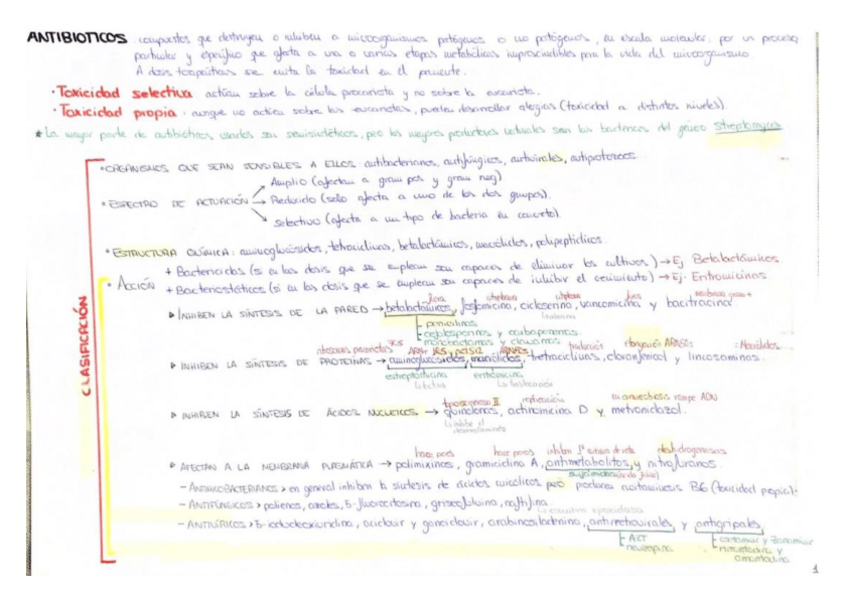 ANTIBIOTICOS compuestos que destruyen o inhiben a microorganismos patógenos o no patógenos, en escala molecular, por un proceso
particular y específico que afecta a una o varias etapas metabólicas imprescindibles para la vida del microorganismo
A dosis terapéuticas se evita la toxicidad en el paciente.
· Toxicidad selectiva actúan sobre la célula procariota y no sobre la eucariota.
· Toxicidad propia: aunque no actúa sobre las eucariotas, pueden desarrollar alergias (toxicidad a distintos niveles).
* La mayor parte de antibióticos usados son semisintéticos, pero los mayores productores actuales son las bacterias del género Streptomyces
CLASIFICACIÓN
· ORGANISMOS QUE SEAN SENSIBLES A ELLOS: antibacterianos, antifúngicos, antivirales, antiprotozoos.
Amplio (afectan a gram pos y gram neg)
· ESPECTRO DE ACTUACIÓN → Reducido (solo afecta a uno de los dos grupos).
Selectivo (afecta a un tipo de bacteria en concreto).
· ESTRUCTURA QUÍMICA: aminoglucósidos, tetraciclinas, betalactámicos, macrólidos, polipeptídicos
+ Bactericidas (si en las dosis que se emplean son capaces de eliminar los cultivos) → Ej Betalactámicos
· ACCIÓN + Bacteriostáticos (si en las dosis que se emplean son capaces de inhibir el crecimiento) → Ej.
▸ INHIBEN LA SÍNTESIS DE LA PARED → betalactámicos, fosfomicina, cicloserina, vancomicina y bacitracina
penicilinas
cefalosporinas y carbapenemas
monobactamas y clavamas
30S 50S
▸ INHIBEN LA SÍNTESIS DE PROTEÍNAS → aminoglucósidos, macrólidos, tetraciclinas, cloranfenicol y lincosaminas.
estreptomicina eritromicina
▸ INHIBEN LA SÍNTESIS DE ÁCIDOS NUCLEICOS → quinolonas, actinomicina D y metronidazol.
hace poros hace poros
▸ AFECTAN A LA MEMBRANA PLASMÁTICA → polimixinas, gramicidina A, antimetabolitos, y nitrofuranos.
- ANTIMICOBACTERIANOS > en general inhiben la síntesis de ácidos micólicos pero B6 (toxicidad propia).
- ANTIFÚNGICOS > polienos, azoles, 5-fluorocitosina, griseofulvina, naftifina
- ANTIVÍRICOS > 5-iododeoxiuridina, aciclovir y ganciclovir, antirretrovirales y antigripales
AZT
nevirapina
rimantadina y
amantadina
1